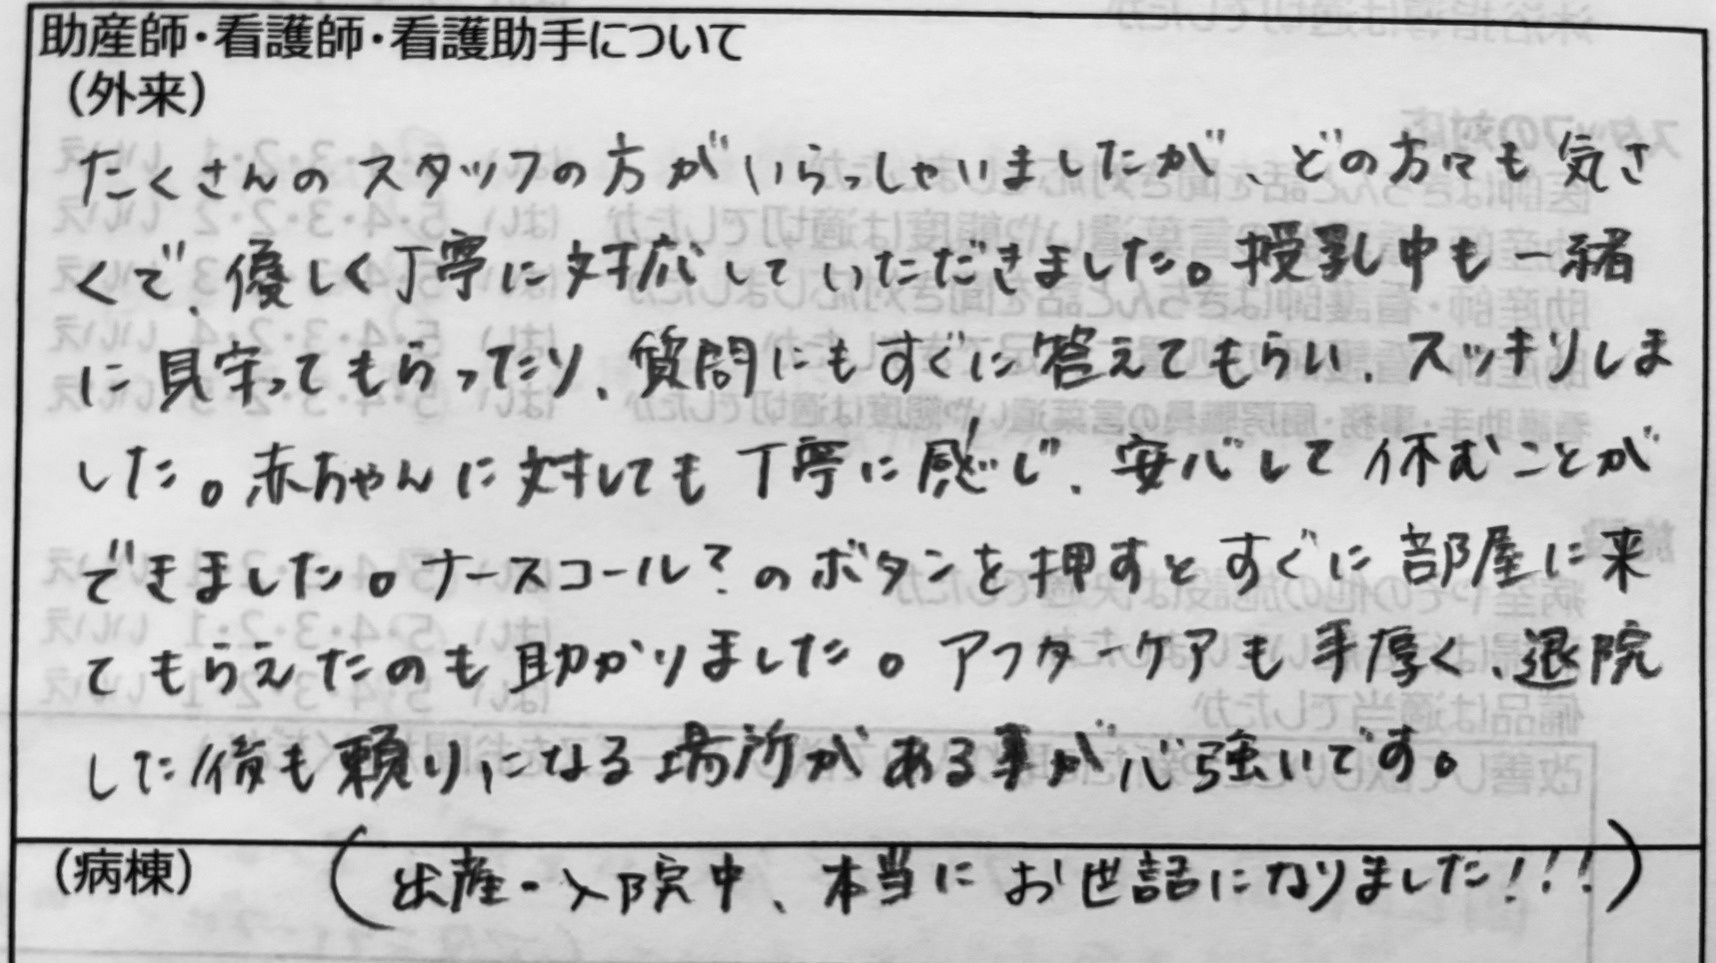 助産師・看護師・看護助手について
（外来）
たくさんのスタッフの方がいらっしゃいましたが、どの方々も気さ
くで、優しく丁寧に対応していただきました。授乳中も一緒
に見守ってもらったり、質問にもすぐに答えてもらい、スッキリしま
した。赤ちゃんに対しても丁寧に感じ、安心して休むことが
できました。ナースコール？のボタンを押すとすぐに部屋に来
てもらえたのも助かりました。アフターケアも手厚く、退院
した後も頼りになる場所がある事が心強いです。
（病棟） （出産・入院中、本当にお世話になりました！！！）